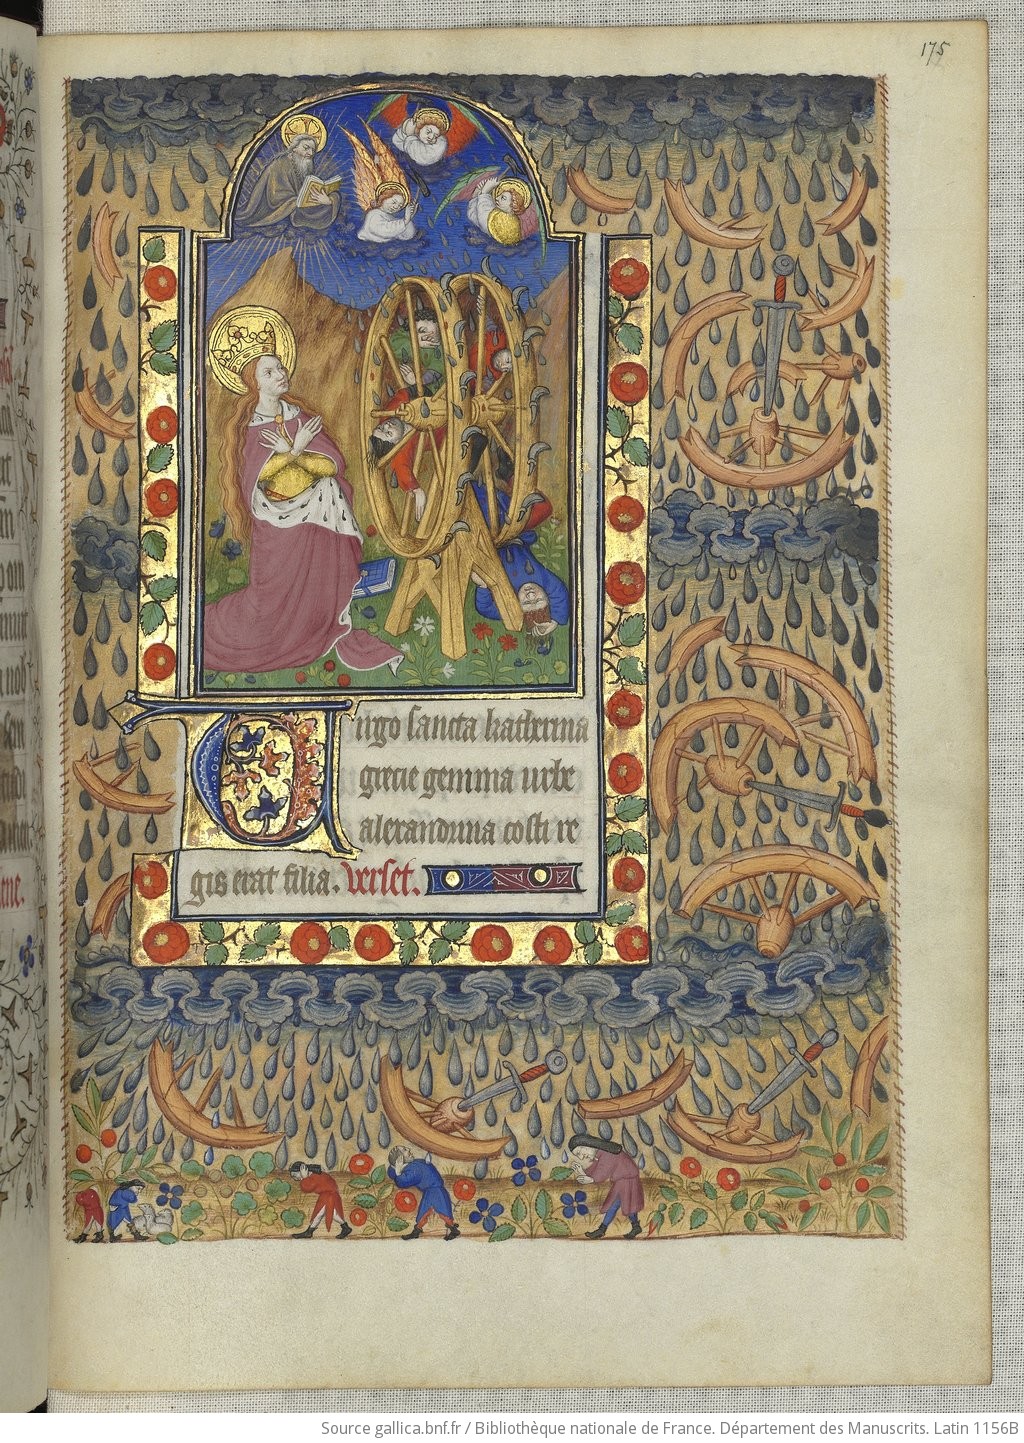 175
Virgo sancta katherina
grecie gemma urbe
alexandrina costi re
gis erat filia. Verset.
ene.
Source gallica.bnf.fr / Bibliothèque nationale de France. Département des Manuscrits. Latin 1156B